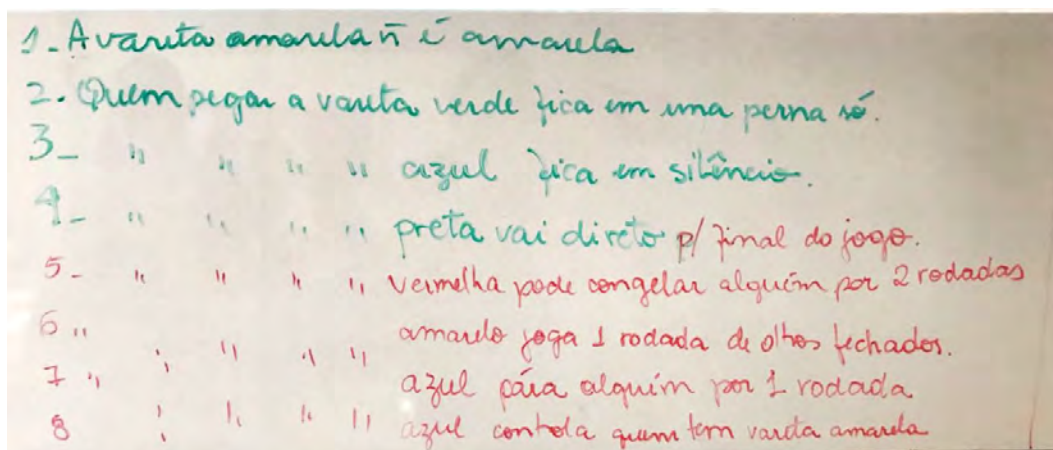 1- A vareta amarela ñ é amarela
2. Quem pegar a vareta verde fica em uma perna só.
3- " " " " azul fica em silêncio.
4- " " " " preta vai direto p/ final do jogo.
5- " " " " vermelha pode congelar alguém por 2 rodadas
6 " " " " " amarelo joga 1 rodada de olhos fechados.
7 " " " " " azul pára alguém por 1 rodada
8 " " " " azul controla quem tem vareta amarela